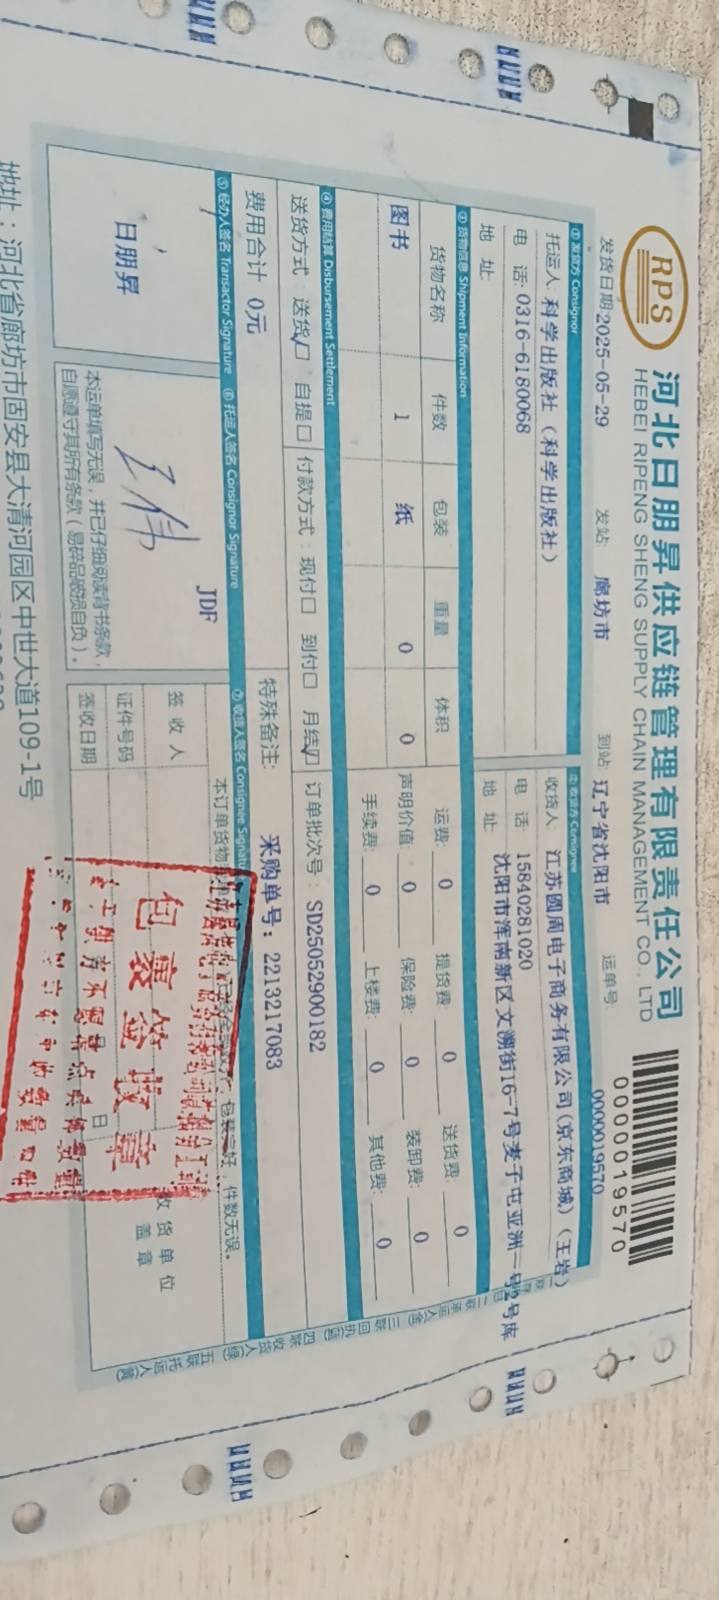 RPS
河北日朋昇供应链管理有限责任公司
HEBEI RIPENG SHENG SUPPLY CHAIN MANAGEMENT CO., LTD
0000019570
发货日期:2025-05-29 发站: 廊坊市 到站: 辽宁省沈阳市 运单号: 0000019570
① 发货方 Consignor
托运人: 科学出版社(科学出版社)
电 话: 0316-6180068
地 址:
② 收货方 Consignee
收货人: 江苏圆周电子商务有限公司(京东商城)(王岩)
电 话 15840281020
地 址 沈阳市浑南新区文溯街16-7号麦子屯亚洲一号2号库
③ 货物信息 Shipment Information
货物名称 件数 包装 重量 体积
图书 1 纸 0 0
运费: 0 提货费: 0 送货费: 0
声明价值: 0 保险费: 0 装卸费: 0
手续费: 0 上楼费: 0 其他费: 0
④ 费用结算 Disbursement Settlement
送货方式: 送货☑ 自提□ 付款方式: 现付□ 到付□ 月结☑ 订单批次号: SD25052900182
费用合计 0元
特殊备注: 采购单号: 2213217083
⑤ 经办人签名 Transactor Signature
日朋昇
⑥ 托运人签名 Consignor Signature
JDF
王伟
本运单填写无误,并已仔细阅读背书条款,
自愿遵守其所有条款(易碎品破损自负)。
⑦ 收货人签名 Consignee Signature
本订单货物 包装完好,件数无误。
签收人
证件号码
签收日期 日
收货单位
盖 章
包裹签收章
地址:河北省廊坊市固安县大清河园区中世大道109-1号